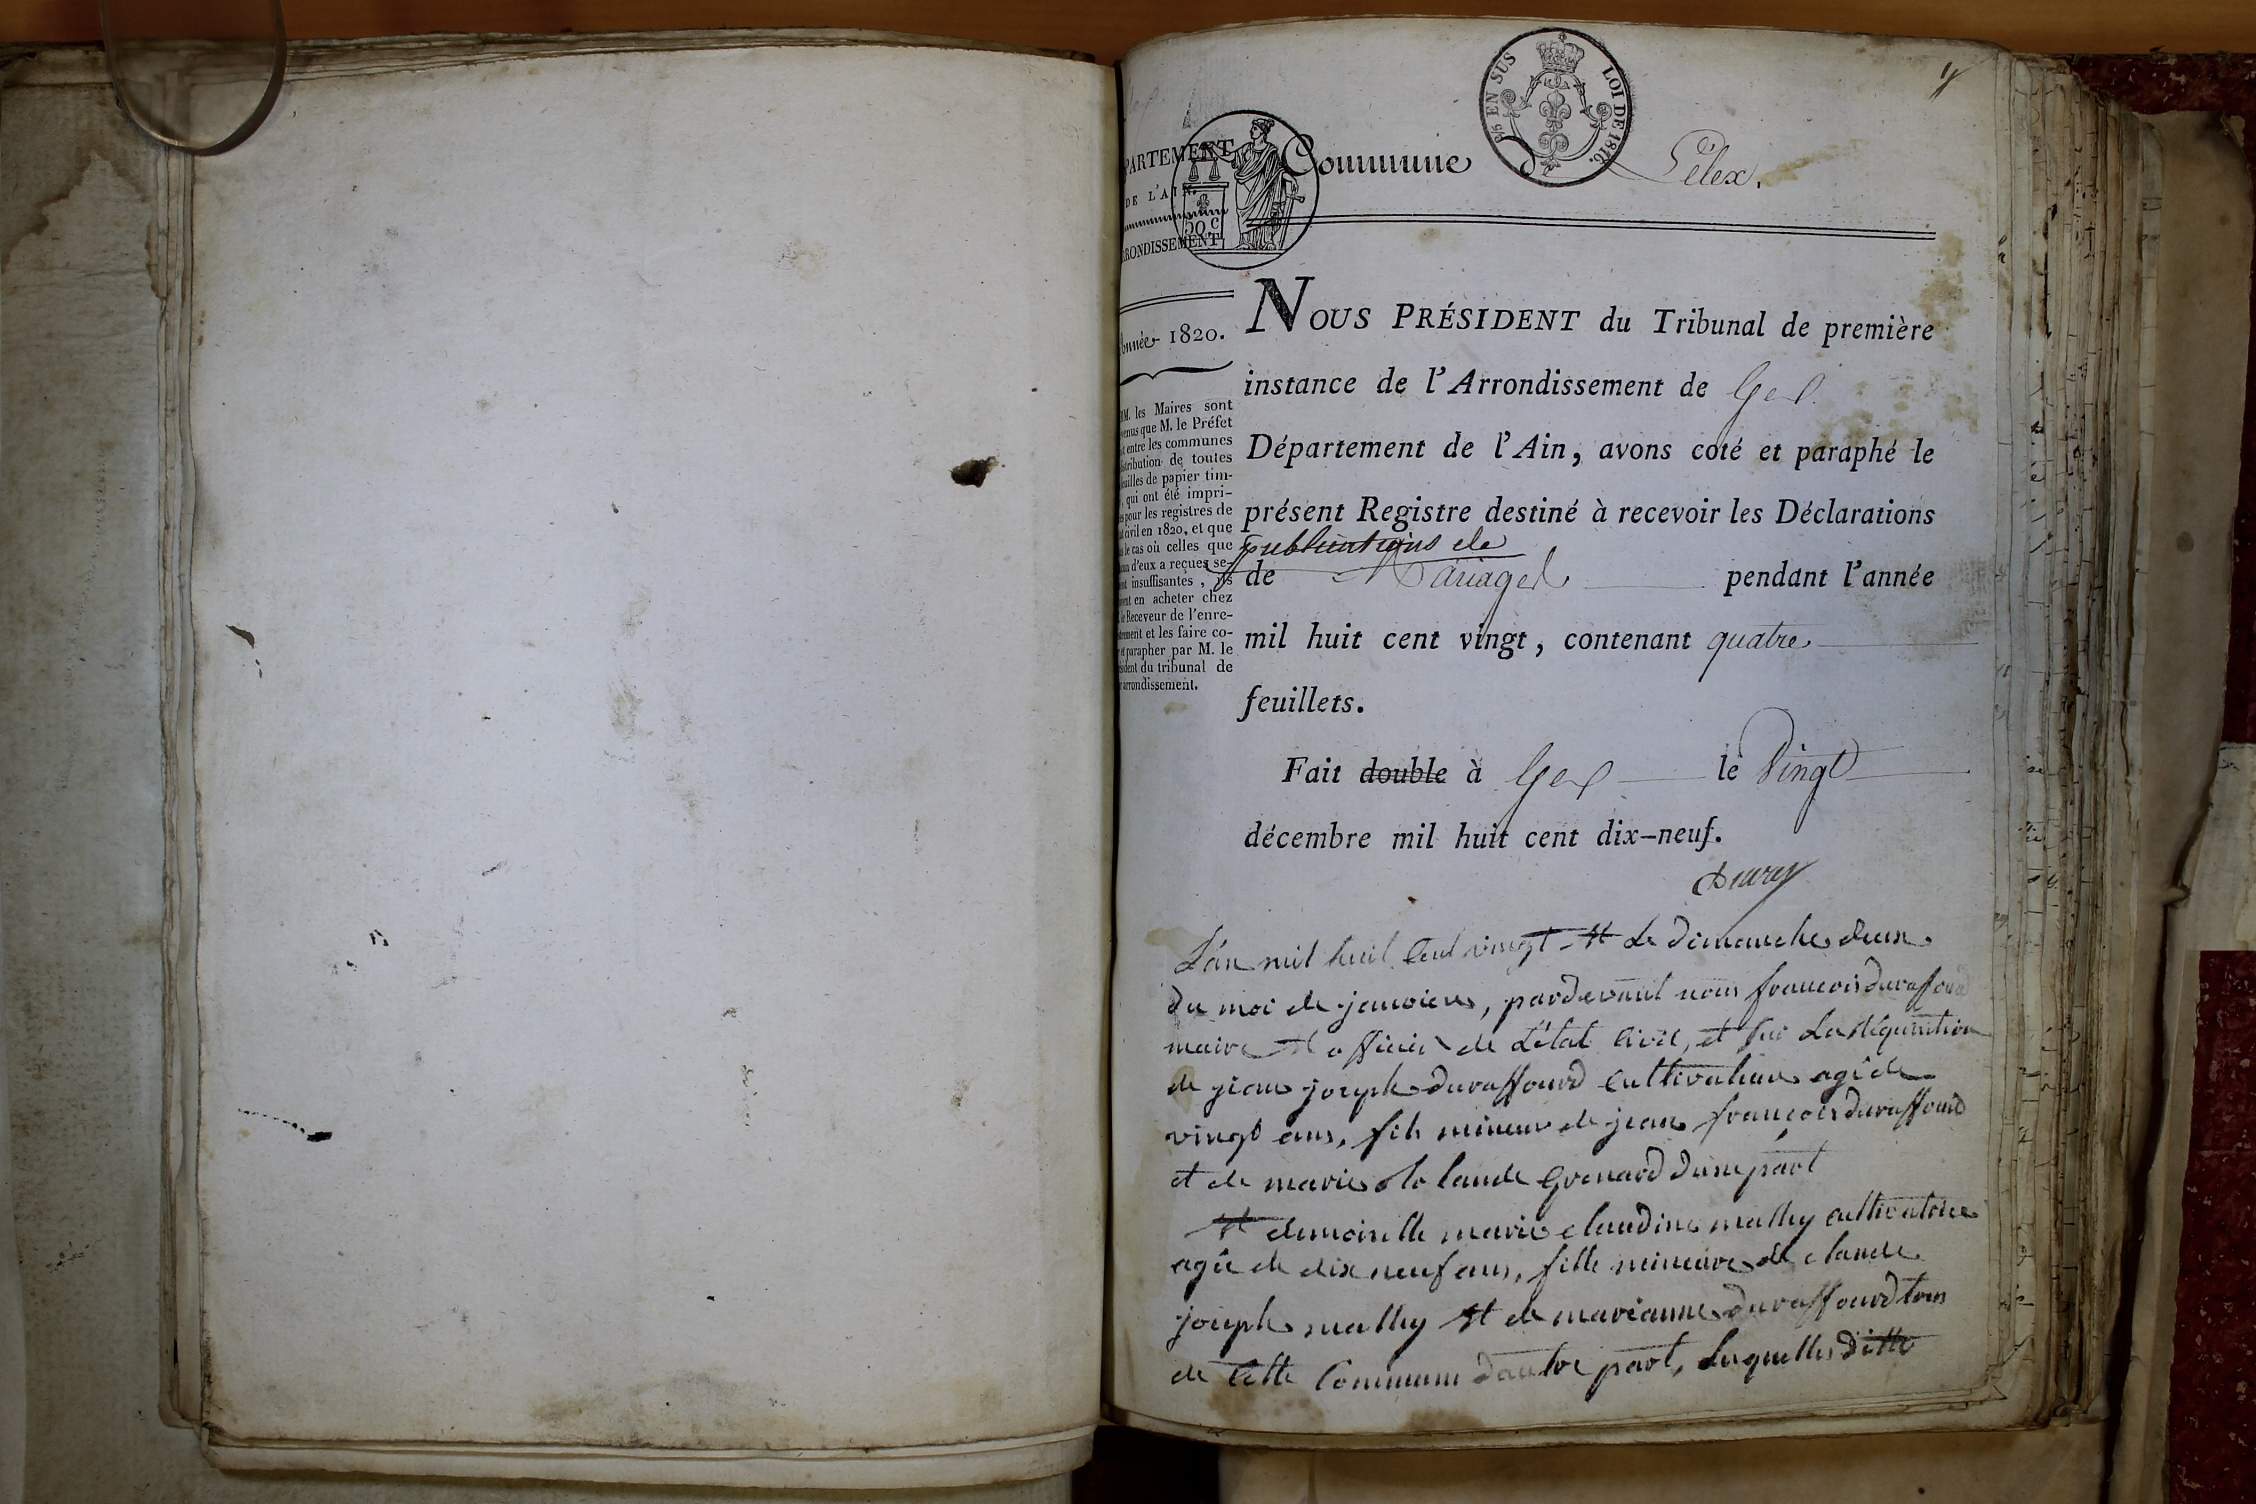 5s EN SUS
LOI DE 1816.
PARTEMENT
DE L'AIN.
RRONDISSEMENT
Commune d
Lélex.
nnée 1820.
M. les Maires sont
venus que M. le Préfet
t entre les communes
stribution de toutes
euilles de papier tim-
, qui ont été impri-
es pour les registres de
t civil en 1820, et que
s le cas où celles que
un d'eux a reçues se-
nt insuffisantes, ils
vent en acheter chez
le Receveur de l'enre-
trement et les faire co-
r et parapher par M. le
sident du tribunal de
r arrondissement.
NOUS PRÉSIDENT du Tribunal de première
instance de l'Arrondissement de Gex
Département de l'Ain, avons coté et paraphé le
présent Registre destiné à recevoir les Déclarations
publications de
de Mariages pendant l'année
mil huit cent vingt, contenant quatre
feuillets.
Fait double à Gex le vingt
décembre mil huit cent dix-neuf.
L'an mil huit Cent vingt et le dimanche deux
du moi de janvier, pardevant nous francois duraffourd
maire et officier de L'état Civil, et sur La Réquisition
de jean joseph duraffourd Cultivateur agé de
vingt ans, fils mineur de jean francois duraffourd
et de marie Claude Grenard dune part
et demoiselle marie claudine mathy cultivatrice
agée de dix neuf ans, fille mineure de claude
joseph mathy et de marianne duraffourd tous
de Cette Commune d'autre part, Lesquelles ditte